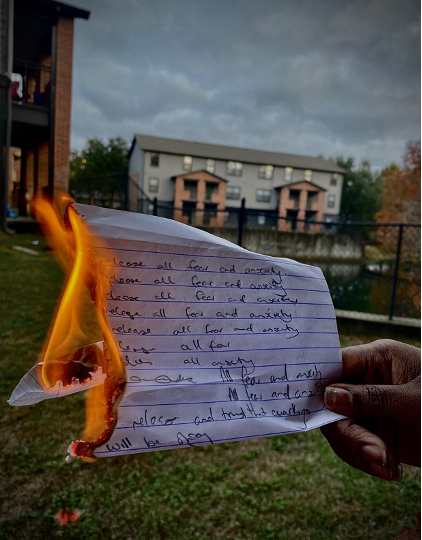 elease all fear and anxiety.
elease all fear and anxiety
elease all fear and anxiety
release all fear and anxiety
release all fear and anxiety
all fear
all anxiety
All fear and anxiety
All fear and anxiety
release and trust that everything
will be okay